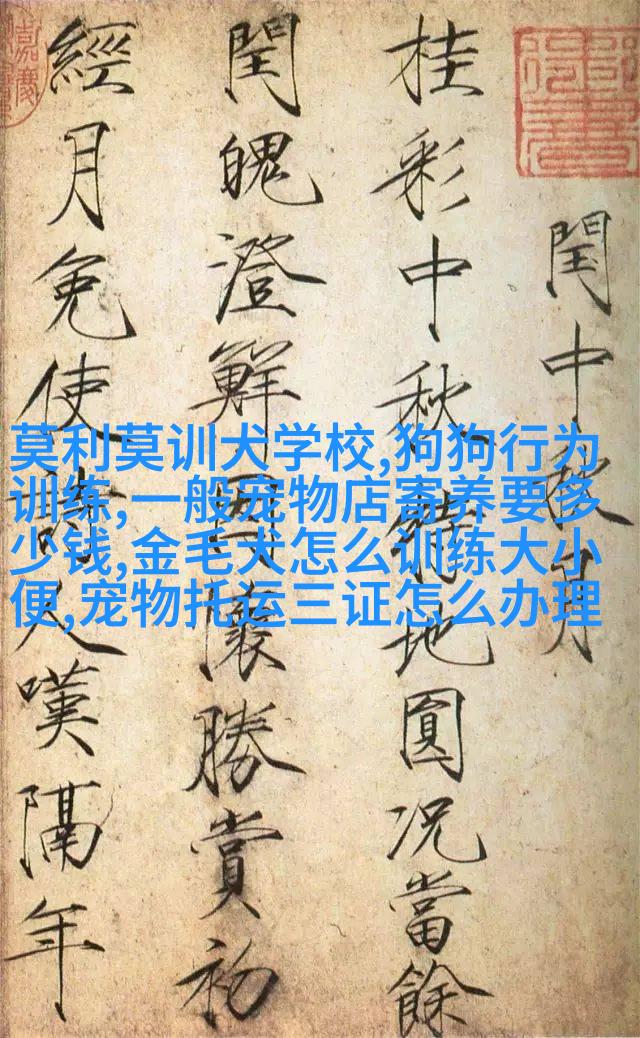 閏中秋月
桂彩中秋特地圓况當餘
閏魄澄鮮因懷勝賞初
經月免使詩人嘆隔年
莫利莫训犬学校,狗狗行为
训练,一般宠物店寄养要多
少钱,金毛犬怎么训练大小
便,宠物托运三证怎么办理